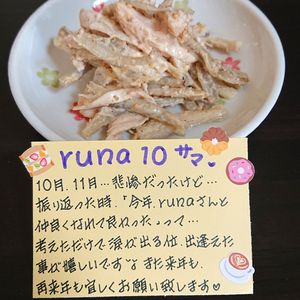 runa10サマ♥
10月、11月…悲惨だったけど…
振り返った時、「今年、runaさんと
仲良くなれて良かった。」って…
考えただけで涙が出る位、出逢えた
事が嬉しいです♡また来年も
再来年も宜しくお願い致します♥